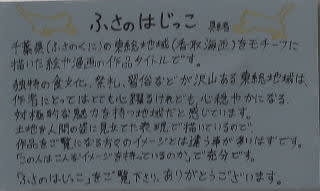 ふさのはじっこ
千葉県(ふさのくに)の東総地域(香取海匝)をモチーフに
描いた絵や漫画の作品タイトルです。
独特の食文化、祭礼、習俗などが沢山ある東総地域は、
作者にとってはとても心躍るけれども、心穏やかになる、
対極的な魅力を持つ地域だと感じています。
土地を人間の姿に見立てた表現で描いているので
作品をご覧になる方でのイメージとは違う事がありはずです。
「この人はこんなイメージを持っているのか」で充分です。
「ふさのはじっこ」をご覧下さり、ありがとうございます。